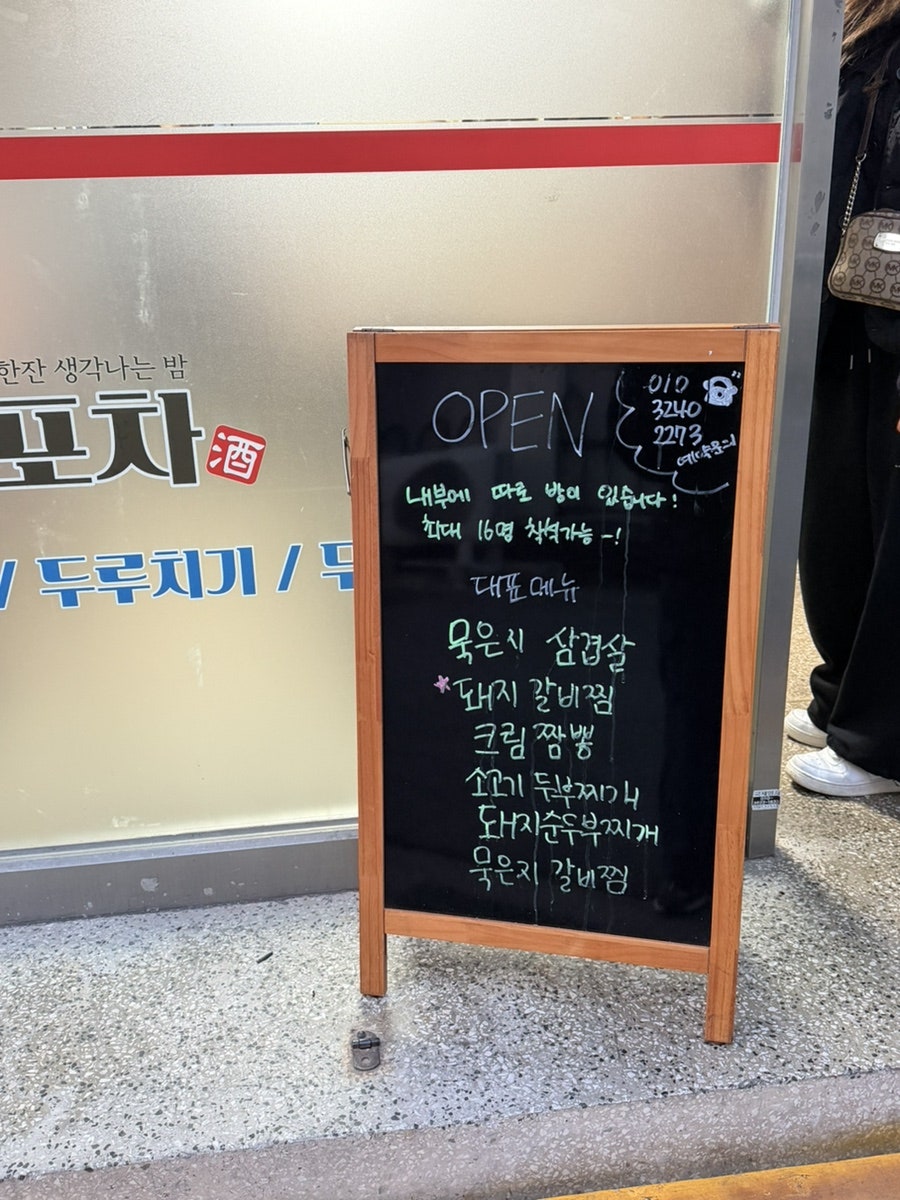 한잔 생각나는 밤
포차
酒
/ 두루치기 / 두
OPEN
010
3240
2273
예약문의
내부에 따로 방이 있습니다!
최대 16명 착석가능-!
대표메뉴
묵은지 삼겹살
돼지 갈비찜
크림짬뽕
소고기 두부찌개
돼지순두부찌개
묵은지 갈비찜
MK